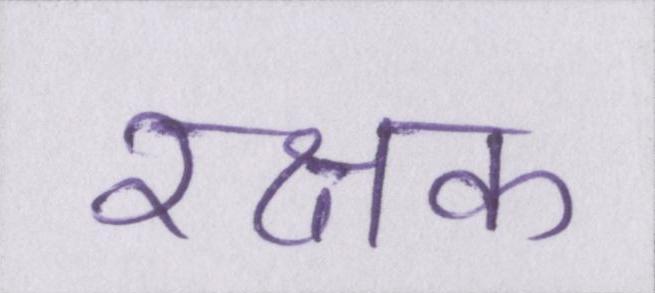 रक्षक